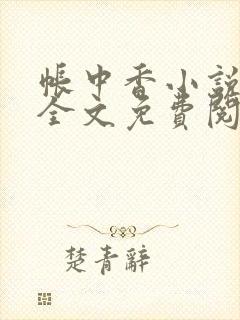 帳中香小説
全文免費閱
楚青辭